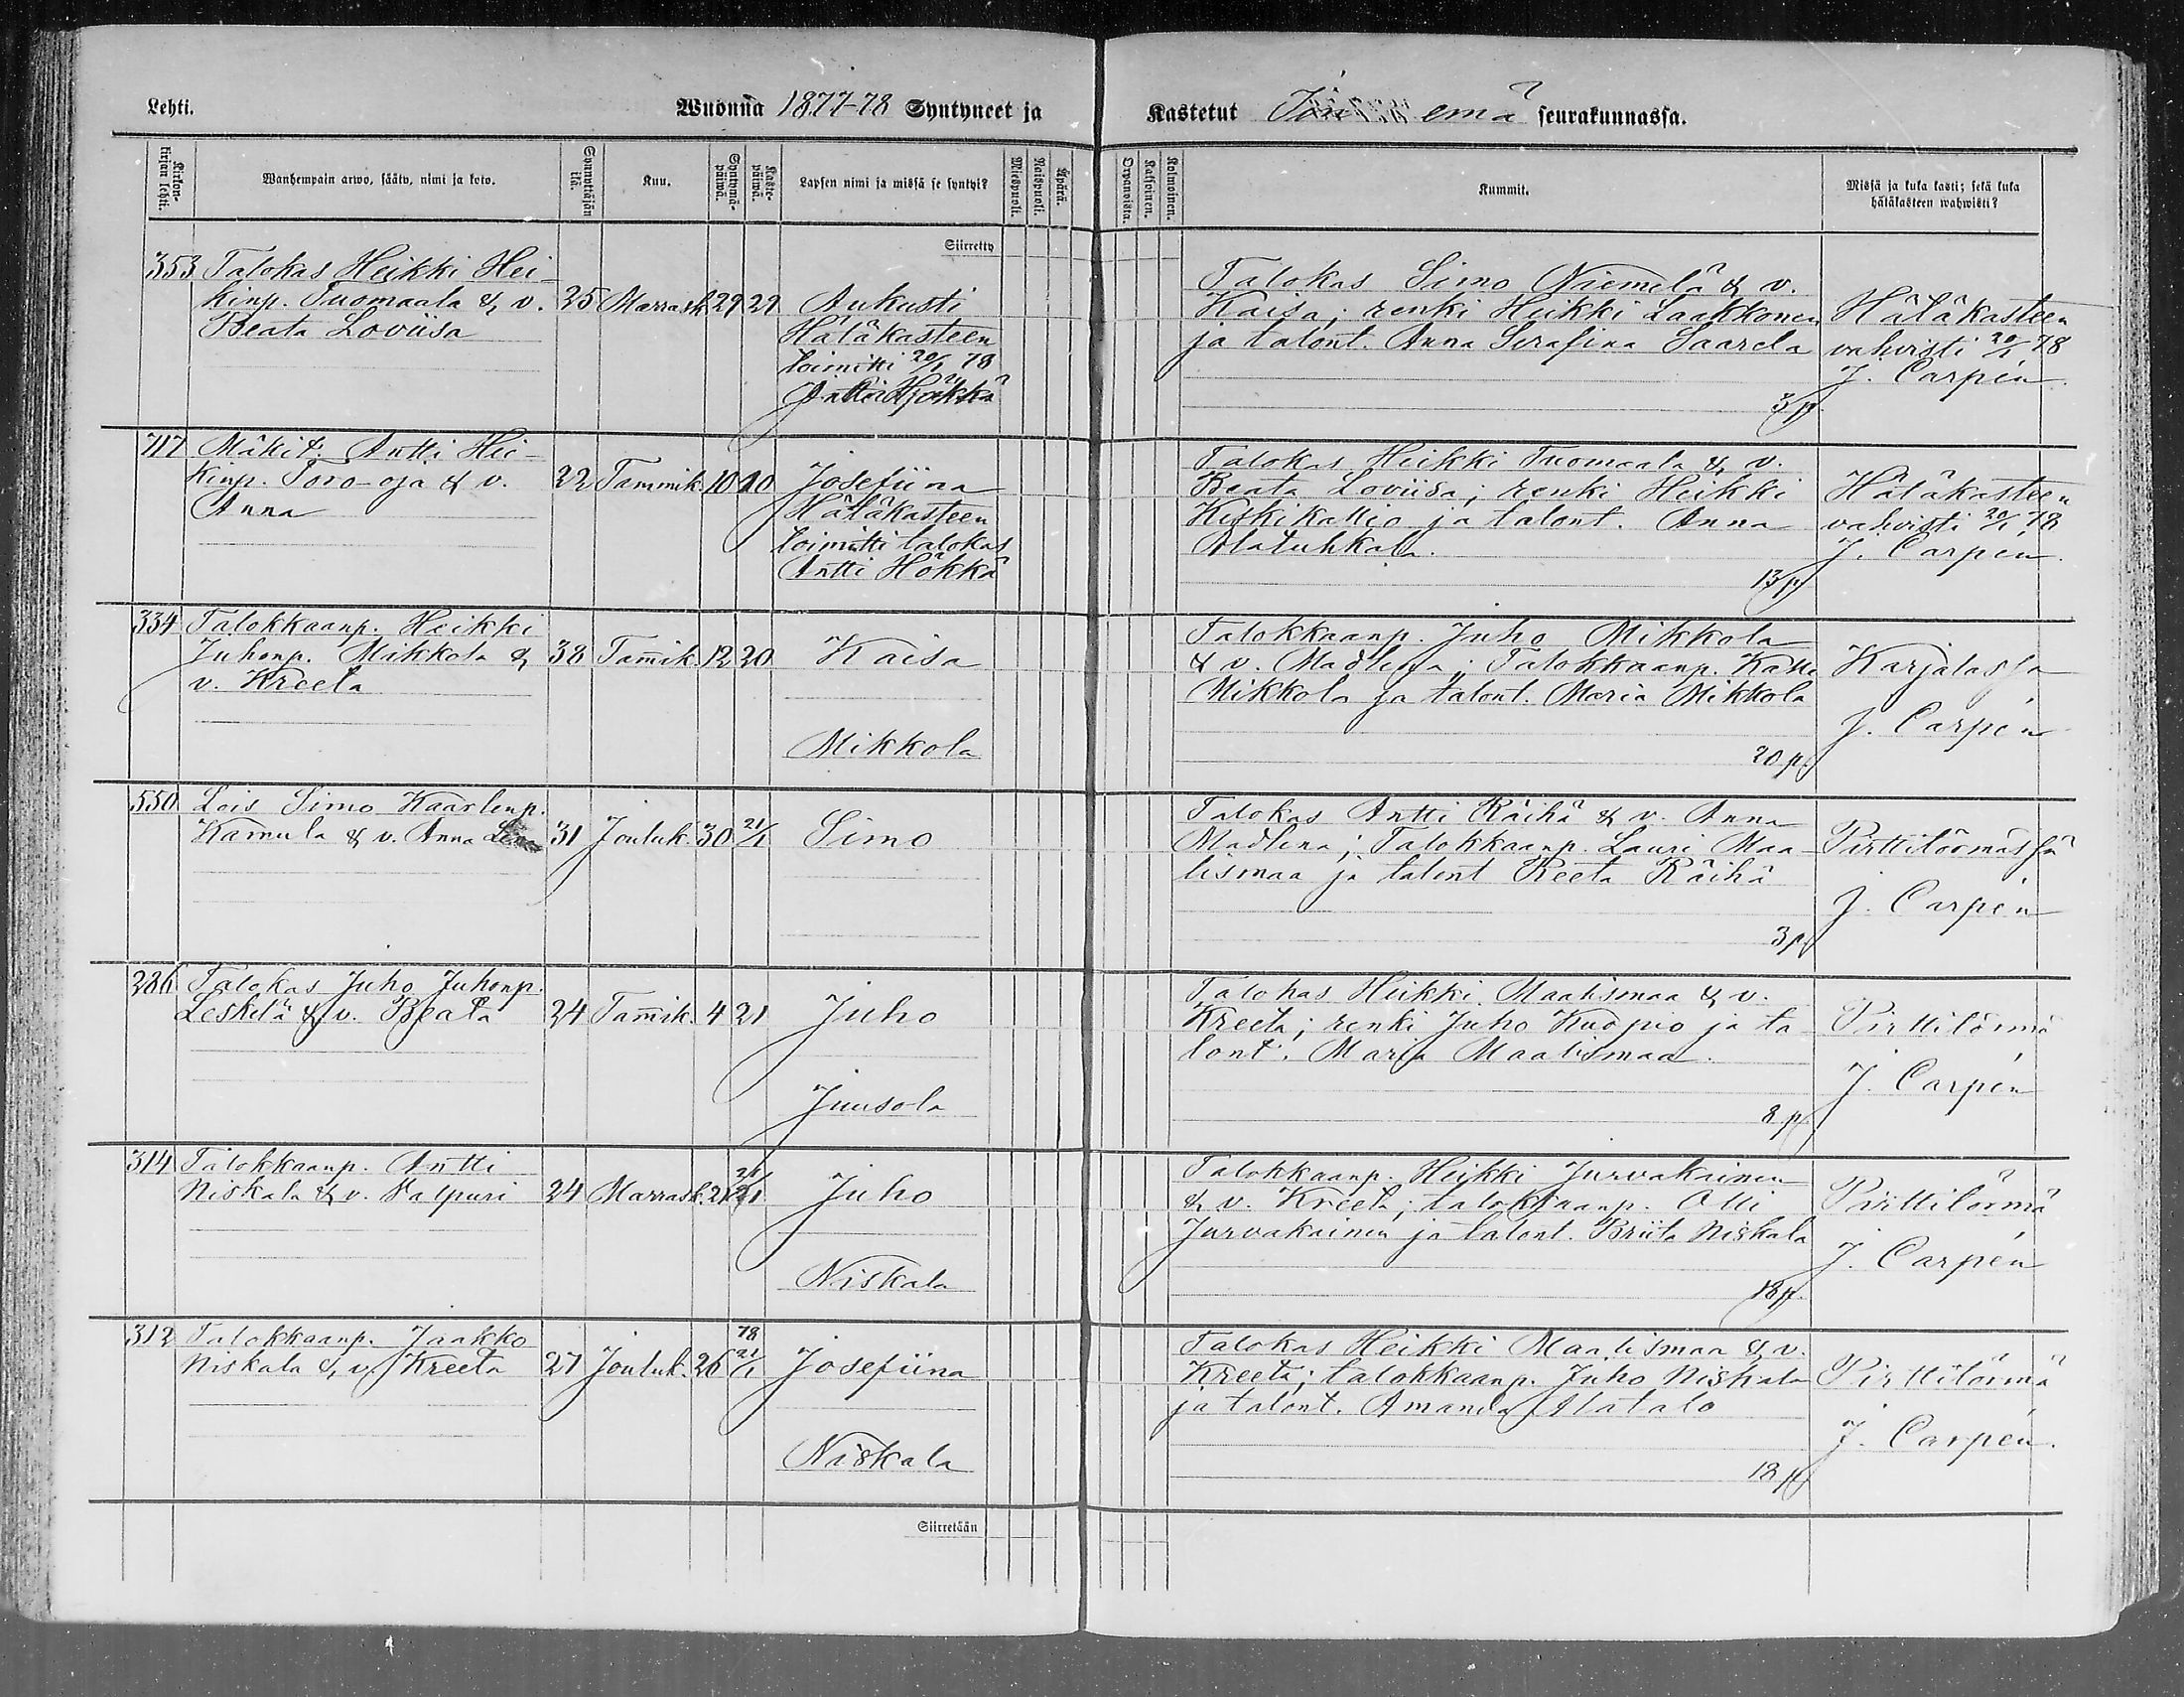 Lehti.
Wuonna 1877-78 Syntyneet ja
Kastetut emä seurakunnassa.
Kirkonkirjan lehti.
Wanhempain arwo, sääty, nimi ja koto.
Synnyttäjän ikä.
Kuu.
Syntymäpäiwä.
Kastepäiwä.
Lapsen nimi ja missä se syntyi?
Miespuoli.
Naispuoli.
Äpärä.
Orpanoista.
Kaksoinen.
Kolmoinen.
Kummit.
Missä ja kuka kasti; sekä kuka
hätäkasteen wahwisti?
Siirretty
353 Talokas Heikki Hei-
kinp. Tuomaala & v. 25 Marrask. 29 29 Aukusti
Beata Loviisa Hätäkasteen
toimitti 20/1 78
Antti Hökkä
Talokas Simo Niemelä & v.
Kaisa; renki Heikki Laakkonen
ja talont. Anna Serafina Saarela
3 p.
Hätäkasteen
vahvisti 20/1 78
J. Carpén.
717 Mäkit. Antti Hei-
kinp. Toro-oja & v. 22 Tammik. 10 10 Josefiina
Anna Hätäkasteen
toimitti talokas
Antti Hökkä
Talokas Heikki Tuomaala & v.
Beata Loviisa; renki Heikki
Kiskikallio ja talont. Anna
Alatuhkala.
13 p
Hätäkasteen
vahvisti 20/1 78
J. Carpén.
334 Talokkaanp. Heikki
Juhonp. Mikkola & 38 Tam̄ik. 12 20 Kaisa
v. Kreeta
Mikkola
Talokkaanp. Juho Mikkola
& v. Madlena; Talokkaanp. Kalle
Mikkola ja talont. Maria Mikkola
20 p.
Karjalassa
J. Carpén
550 Lois Simo Kaarlenp.
Kamula & v. Anna 31 Jouluk. 30 21/1 Simo
Talokas Antti Räihä & v. Anna
Madlena; Talokkaanp. Lauri Maa-
lismaa ja talont Reeta Räihä
3 p.
Pirttilörmässä
J. Carpén
286 Talokas Juho Juhonp.
Leskelä & v. Beata 24 Tam̄ik. 4 21 Juho
Juusola
Talokas Heikki Maalismaa & v.
Kreeta; renki Juho Kuopio ja ta
lont. Maria Maalismaa.
8 p.
Pirttilörmä
J. Carpén
314 Talokkaanp. Antti
Niskala & v. Valpuri 24 Marrask. 21 Juho
Niskala
Talokkaanp. Heikki Jurvakainen
& v. Kreeta; talokkaanp. Olli
Jurvakainen ja talont. Briita Niskala
18 p.
Pirttilörmä
J. Carpén
312 Talokkaanp. Jaakko
Niskala & v. Kreeta 27 Jouluk. 26 78 21/1 Josefiina
Niskala
Talokas Heikki Maalismaa & v.
Kreeta; talokkaanp. Juho Niskala
ja talont. Amanda Alatalo
18 p
Pirttilörmä
J. Carpén.
Siirretään